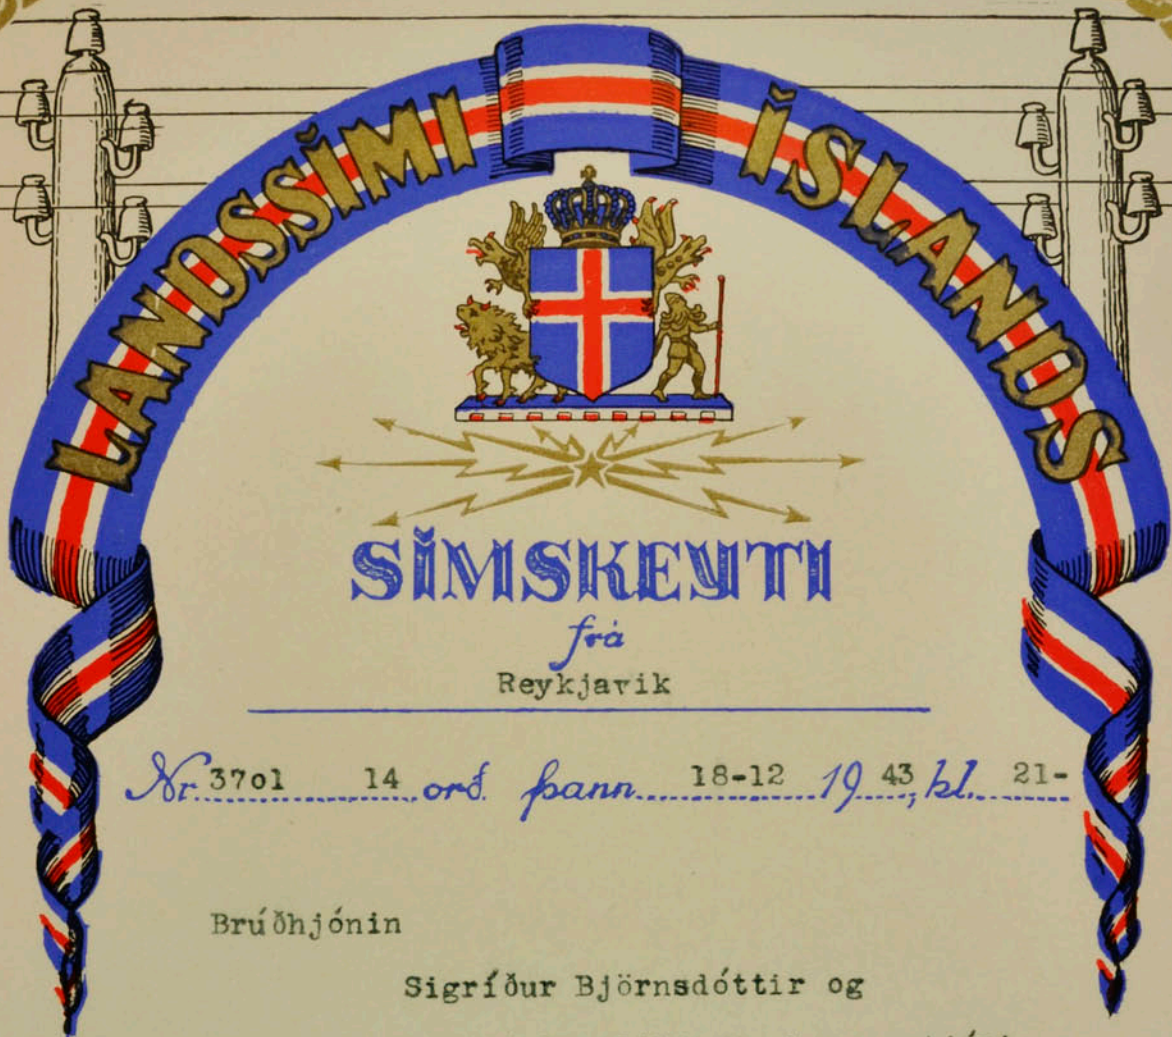 LANDSSÍMI ÍSLANDS
SÍMSKEYTI
frá
Reykjavik
Nr. 3701 14 orð. þann 18-12 19 43, kl. 21-
Brúðhjónin
Sigríður Björnsdóttir og